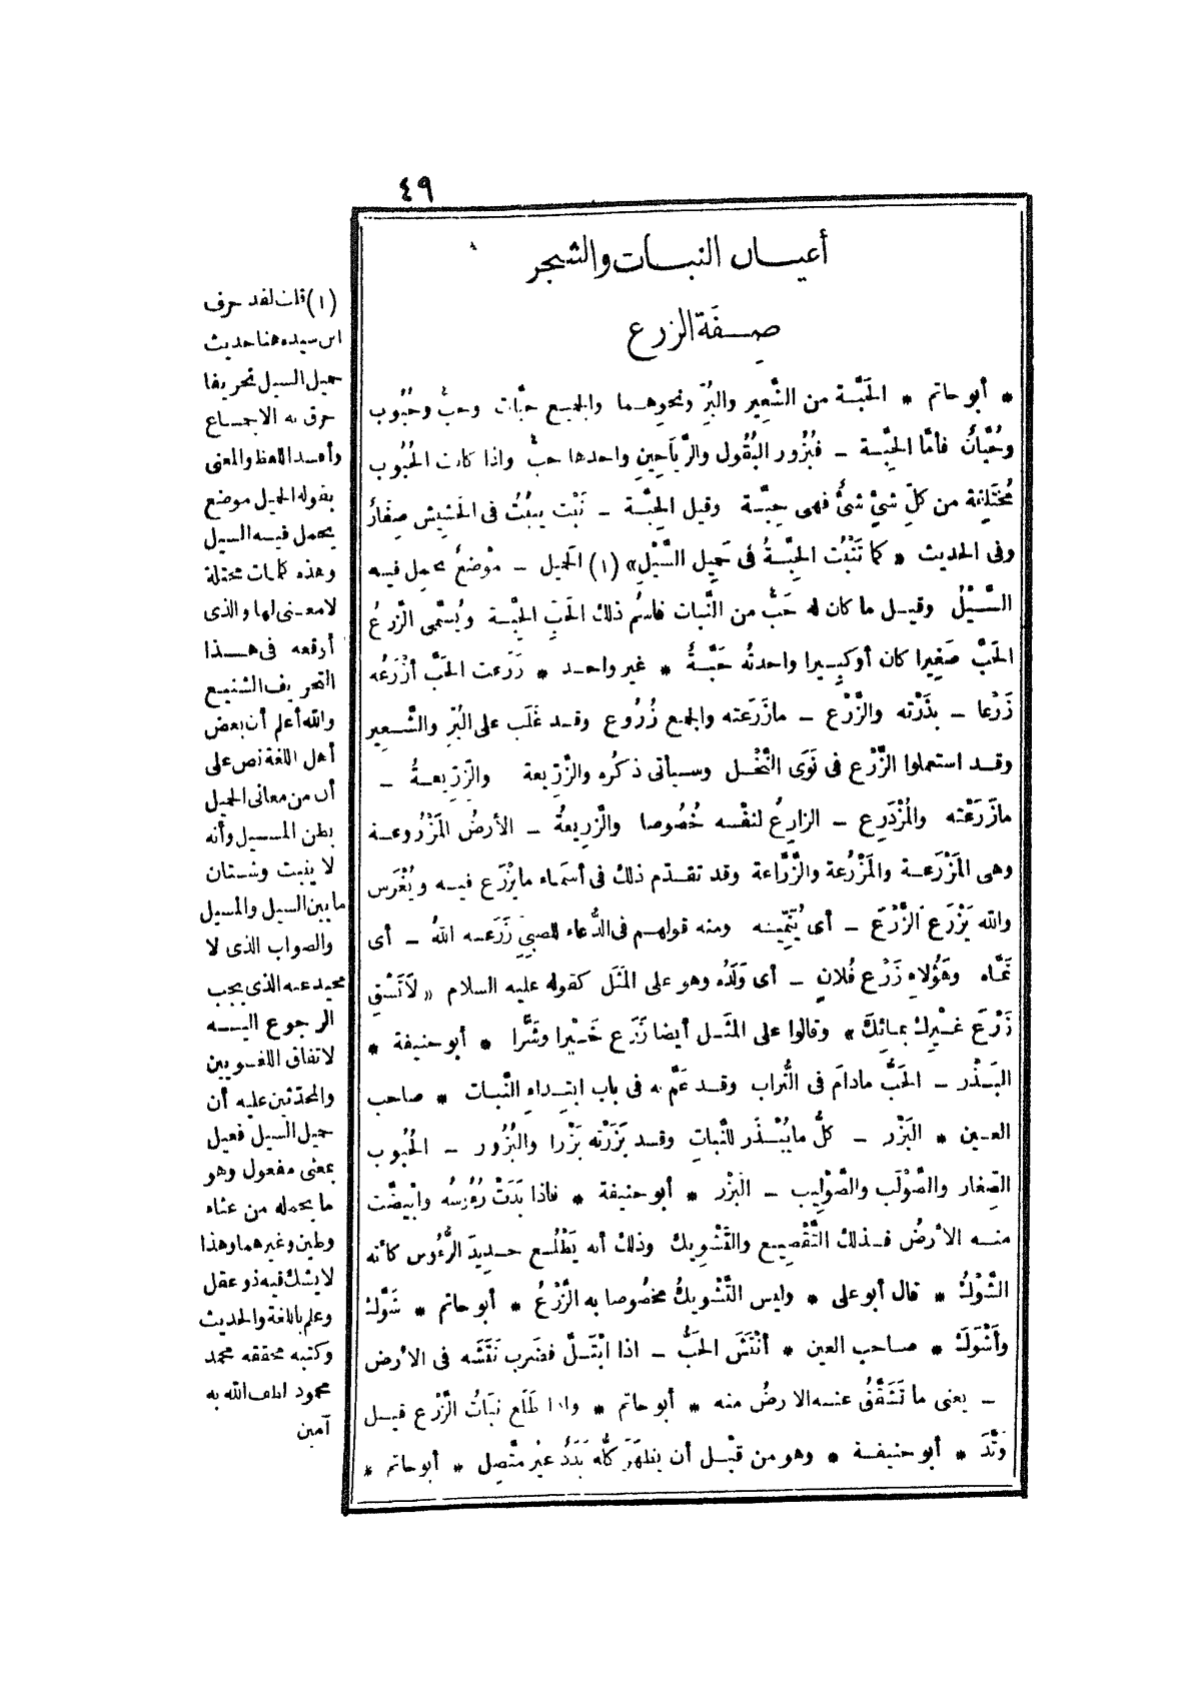 ٤٩
أعيان النبات والشجر
صفَة الزرع
* أبو حاتم * الحَبَّة من الشَّعِير والبُرِّ ونحوهما والجمع حَبَّات وحبٌّ وحُبُوب
وحُبَّانٌ فأمَّا الحِبَّة ــ فبُزُور البُقُول والرَّيَاحِينِ واحدها حبٌّ واذا كانت الحُبُوب
مُخْتَلِفة من كلِّ شئٍ شئٌ فهى حِبَّة وقيل الحِبَّة ــ نَبْت ينبُتُ فى الحَشِيش صِغَارٌ
وفى الحديث « كما تَنْبُت الحِبَّةُ فى حَمِيل السَّيْلِ» (١) الحَمِيل ــ مَوْضعٌ يحمِل فيه
السَّيْلُ وقيل ما كان له حَبٌّ من النَّبات فاسْمُ ذلك الحَبِّ الحِبَّة ويُسَمَّى الزَّرعُ
الحَبَّ صَغِيرا كان أو كبِيرا واحدتُه حَبَّةٌ * غير واحد * زَرَعت الحَبَّ أزْرَعُه
زَرْعا ــ بذَرْته والزَّرْع ــ مازَرَعته والجمع زُرُوع وقد غَلَب على البُرِّ والشَّعِير
وقد استعملوا الزَّرْع فى نَوَى النَّخْل وسيأتى ذكُره والزَّرِيعة والزِّرِّيعةُ ــ
مازَرَعْته والمُزْدَرِع ــ الزارِعُ لنفْسه خُصُوصا والزَّرِيعةُ ــ الأرضُ المَزْرُوعة
وهى المَزْرَعة والمَزْرُعة والزَّرَّاعة وقد تقدّم ذلك فى أسمَاء مايُزْرَع فيه ويُغْرَس
والله يَزْرَع الزَّرْعَ ــ أى يُنَمِّيه ومنه قولهم فى الدُّعاء للصبىِّ زَرَعه اللهُ ــ أى
نَمَّاه وهَؤُلاءِ زَرْع فُلانٍ ــ أى وَلَدُه وهو على المثَل كقوله عليه السلام «لَاتَسْقِ
زَرْعَ غَيْرِك بمائِكَ» وقالوا على المثَل أيضا زَرَع خَيْرا وشَرًّا * أبو حنيفة *
البَذْر ــ الحَبُّ مادامَ فى التُّراب وقد عَمَّ به فى باب ابتِداءِ النَّبات * صاحب
العين * البَزْر ــ كلُّ مايُبْذَر للنَّباتِ وقد بَزَرْته بَزْرا والبُزُور ــ الحُبُوب
الصِّغار والصَّوْلَب والصَّوْلِيب ــ البَزْر * أبو حنيفة * فاذا بَدَتْ رُءُوسُه وابْيضَّت
منه الأرْضُ فذلك التَّقْصِيع والتَّشْوِيك وذلك أنه يَطْلُع حدِيدَ الرُّءُوس كأنه
الشَّوْكُ * قال أبو على * وليس التَّشْوِيكُ مخصُوصا به الزَّرْعُ * أبو حاتم * شَوَّك
وأَشْوَكَ * صاحب العين * أنْتَشَ الحَبُّ ــ اذا ابْتَلَّ فضَرب نَتَشَه فى الأرض
ــ يعنى ما تَشَقَّقُ عنه الارضُ منه * أبو حاتم * واذا طَلَع نَبَاتُ الزَّرْع قيل
وَتَّدَ * أبو حنيفة * وهو من قبْل أن يظهَرَ كلُّه بَدَدٌ غيْر مُتَّصِل * أبو حاتم *
(١) قلت لقد حرف
ابن سيده هنا حديث
حميل السيل تحريفا
خرق به الاجماع
وأفسد اللفظ والمعنى
بقوله الحميل موضع
يحمل فيه السيل
وهذه كلمات مختلة
لامعنى لها والذى
أوقعه فى هذا
التحريف الشنيع
والله أعلم أن بعض
أهل اللغة نص على
أن من معانى الحميل
بطن المسيل وأنه
لا ينبت وشتان
ما بين السيل والمسيل
والصواب الذى لا
محيد عنه الذى يجب
الرجوع اليه
لاتفاق اللغويين
والمحدّثين عليه أن
حميل السيل فعيل
بمعنى مفعول وهو
ما يحمله من غثاء
وطين وغيرهما وهذا
لا يشك فيه ذو عقل
وعلم باللغة والحديث
وكتبه محققه محمد
محمود لطف الله به
آمين